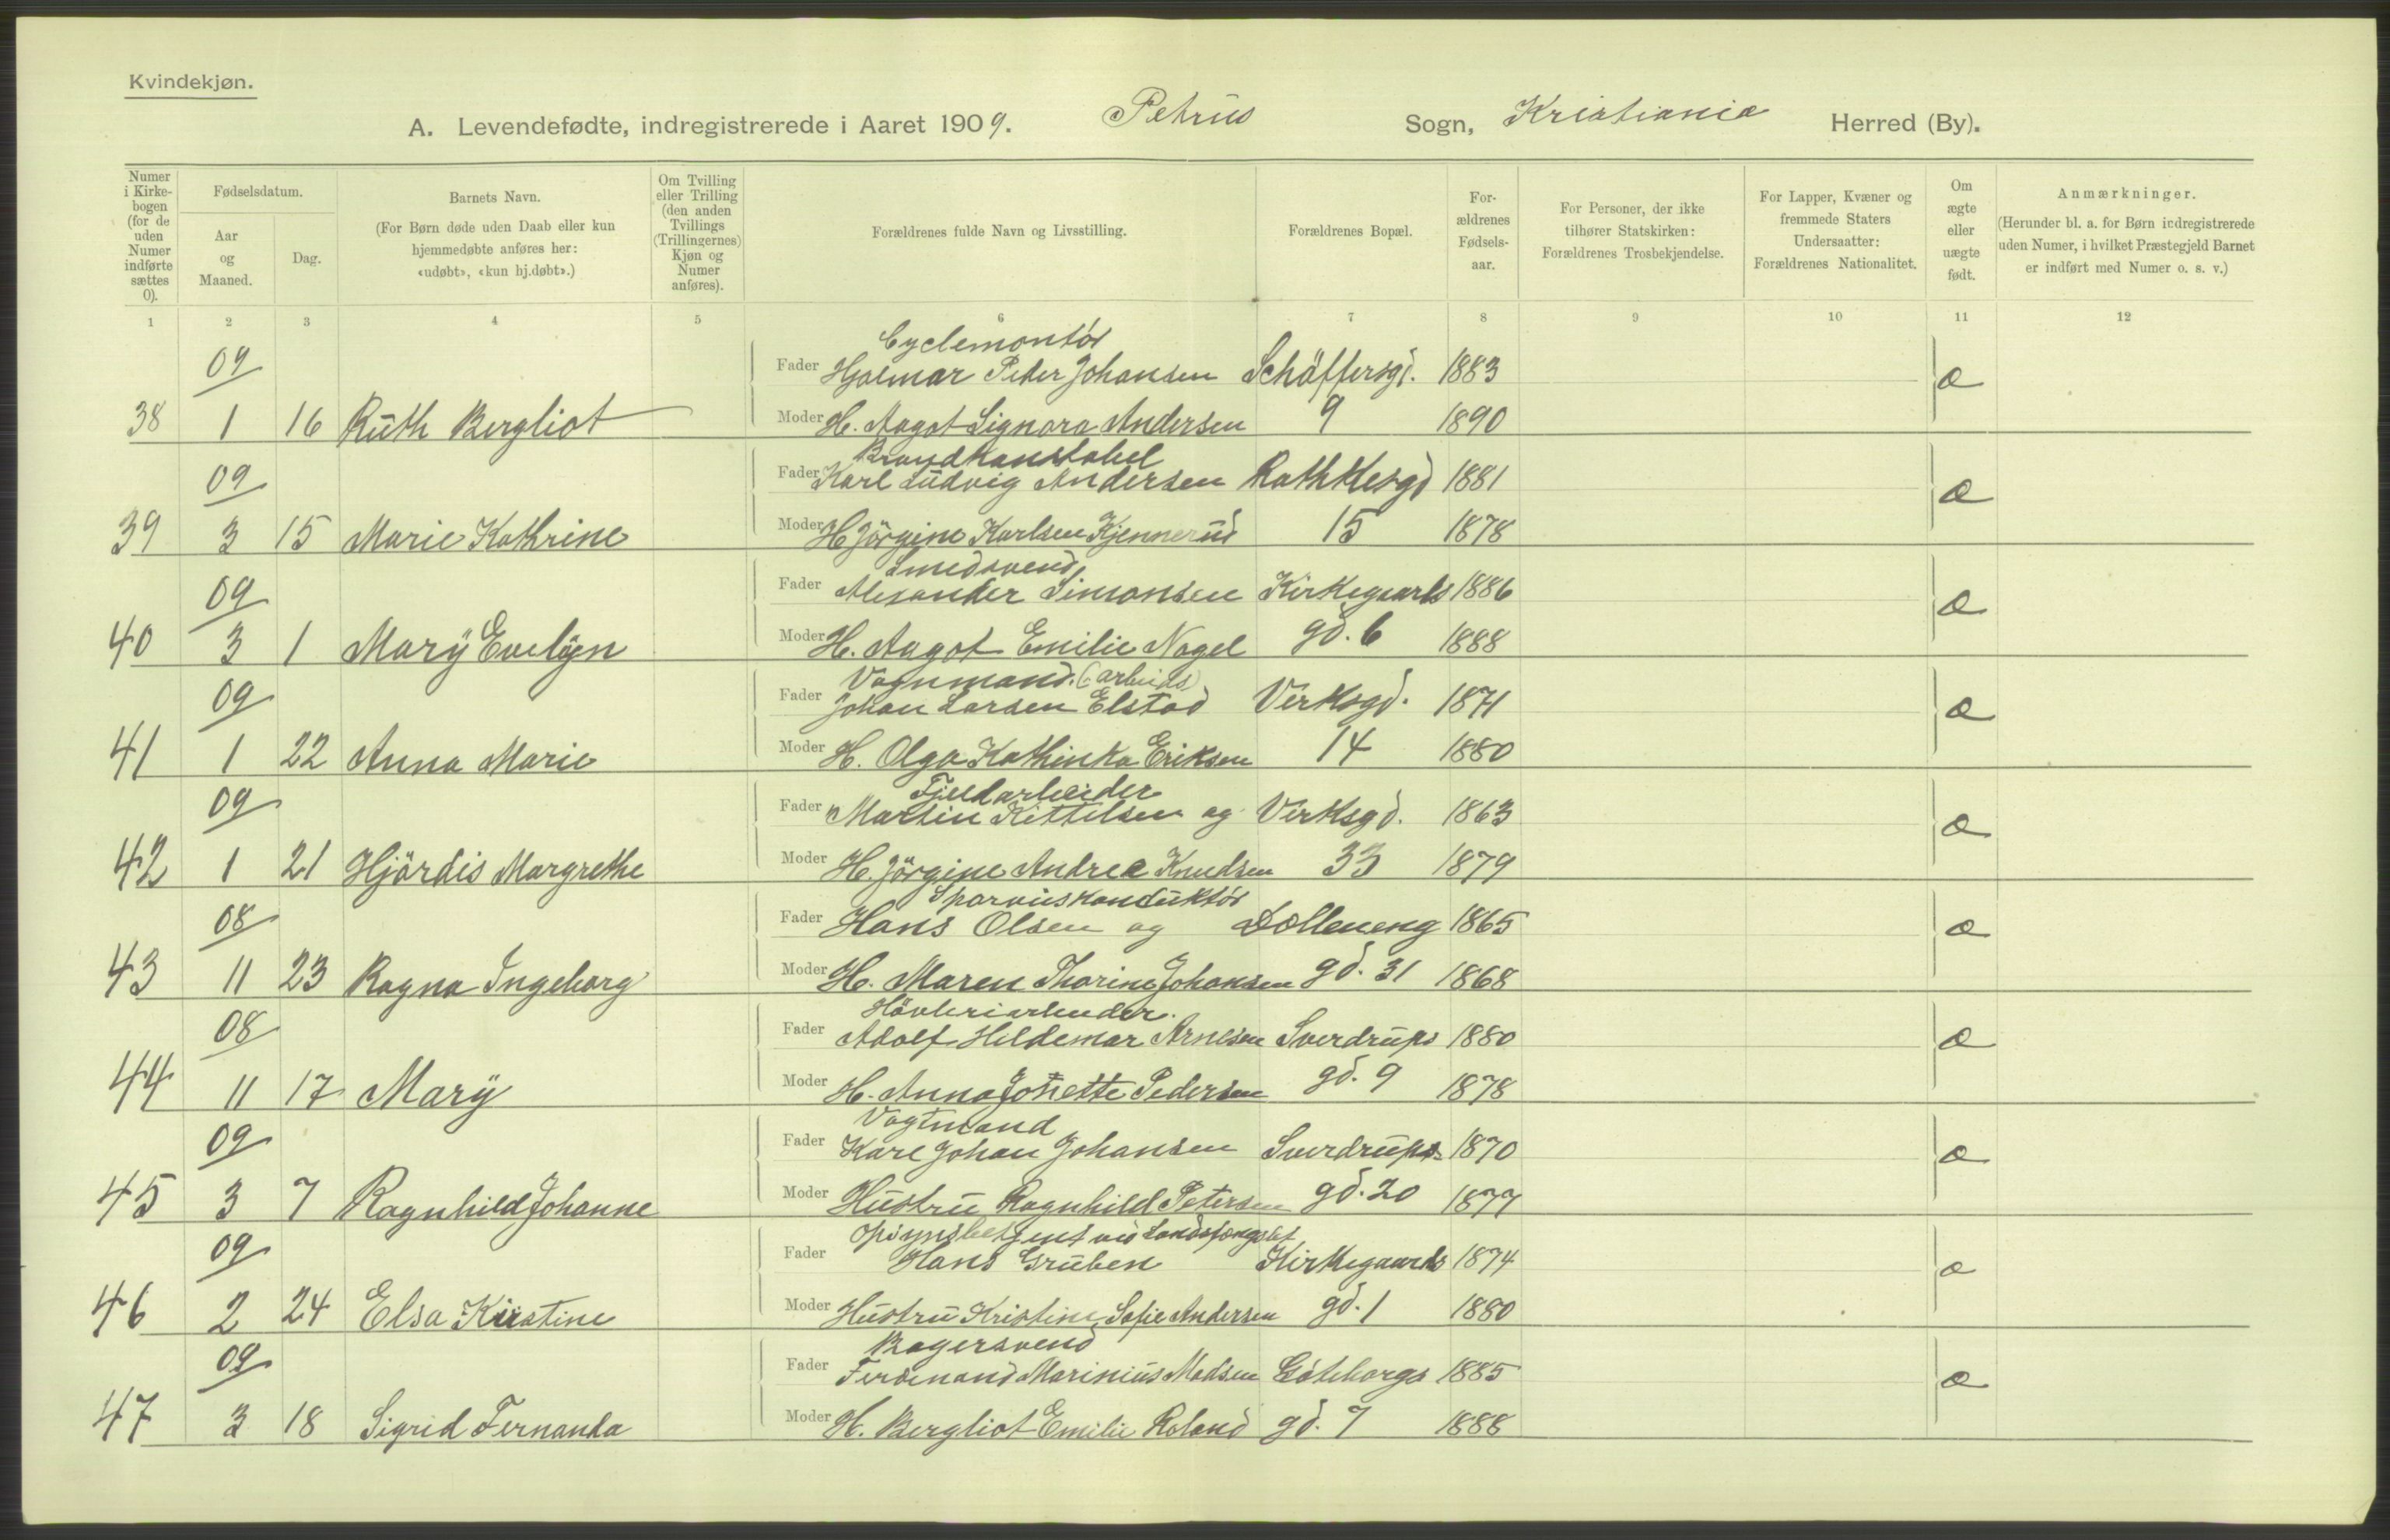 Kvindekjøn.
A. Levendefødte, indregistrerede i Aaret 1909. Petrus Sogn, Kristiania Herred (By).
Numer i Kirkebogen (for de uden Numer indførte sættes 0).
Fødselsdatum.
Aar og Maaned.
Dag.
Barnets Navn.
(For Børn døde uden Daab eller kun hjemmedøbte anføres her: «udøbt», «kun hj.døbt».)
Om Tvilling eller Trilling (den anden Tvillings (Trillingernes) Kjøn og Numer anføres).
Forældrenes fulde Navn og Livsstilling.
Forældrenes Bopæl.
For-ældrenes Fødsels-aar.
For Personer, der ikke tilhører Statskirken: Forældrenes Trosbekjendelse.
For Lapper, Kvæner og fremmede Staters Undersaatter: Forældrenes Nationalitet.
Om ægte eller uægte født.
Anmærkninger.
(Herunder bl. a. for Børn indregistrerede uden Numer, i hvilket Præstegjeld Barnet er indført med Numer o. s. v.)
1 2 3 4 5 6 7 8 9 10 11 12
Cyclemontör
09 Fader Hjalmar Peter Johansen Schäffersgd. 1883 æ
38 1 16 Ruth Bergliot Moder H. Aagot Signora Andersen 9 1890
Brandkonstabel
09 Fader Karl Ludvig Andersen Rathkesgd 1881 æ
39 3 15 Marie Kathrine Moder H Jörgine Karlsen Kjennerud 15 1878
Smedsvend
09 Fader Alexander Simonsen Kirkegaards 1886 æ
40 3 1 Mary Evelyn Moder H. Aagot Emilie Nagel gd. 6 1888
Vognmand. (arbeids)
09 Fader Johan Larsen Elstad Verksgd. 1871 æ
41 1 22 Anna Marie Moder H. Olga Kathinka Eriksen 14 1880
Fjeldarbeider
09 Fader Martin Kittilsen og Verksgd. 1863 æ
42 1 21 Hjördis Margrethe Moder H. Jörgine Andrea Knudsen 33 1879
Sporveiskonduktör
08 Fader Hans Olsen og Dælleneng 1865 æ
43 11 23 Ragna Ingeborg Moder H. Maren Thorine Johansen gd. 31 1868
Hövleriarbeider.
08 Fader Adolf Hildemar Arnesen Sverdrups 1880 æ
44 11 17 Mary Moder H. Anna Jonette Pedersen gd. 9 1878
Vagtmand
09 Fader Karl Johan Johansen Sverdrups 1870 æ
45 3 7 Ragnhild Johanne Moder Hustru Ragnhild Petersen gd. 20 1877
Opsynsbetjent ved Landsfængslet
09 Fader Hans Gruben Kirkegaards 1874 æ
46 2 24 Elsa Kirstine Moder Hustru Kristine Sofie Andersen gd. 1 1880
Bagersvend
09 Fader Ferdinand Marinius Madsen Göteborgs 1885 æ
47 3 18 Sigrid Fernanda Moder H. Bergliot Emilie Roland gd. 7 1888